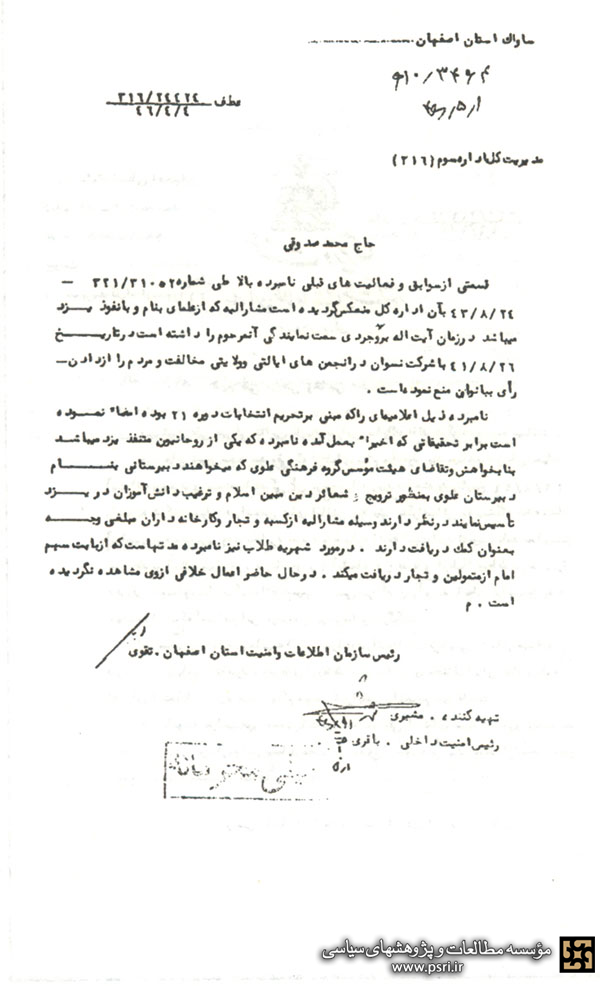 ساواك استان اصفهان
۹۱۰/۳۴۶۴
عطف ۳۱۶/۲۴۴۲۴
۴۶/۴/۴
مدیریت کل اداره سوم (۳۱۶)
حاج محمد صدوقی
قسمتی از سوابق و فعالیت های قبلی نامبرده بالا طی شماره ۳۲۱/۳۱۰۵۲ –
۴۳/۸/۲۴ بآن اداره کل منعکس گردیده است مشارالیه که از علمای بنام و بانفوذ یزد
میباشد در زمان آیت اله بروجردی سمت نمایندگی آنمرحوم را داشته است در تاریخ
۴۱/۸/۲۶ با شرکت نسوان در انجمن های ایالتی وولایتی مخالفت و مردم را از دادن –
رأی ببانوان منع نموده است .
نامبرده ذیل اعلامیه‌ای راکه مبنی بر تحریم انتخابات دوره ۲۱ بوده امضاء نموده
است برابر تحقیقاتی که اخیراً بعمل آمده نامبرده که یکی از روحانیون متنفذ یزد میباشد
بنا بخواهش وتقاضای هیئت مؤسس گروه فرهنگی علوی که میخواهند دبیرستانی بنام
دبیرستان علوی بمنظور ترویج شعائر دین مبین اسلام و ترغیب دانش آموزان در یزد
تأسیس نمایند در نظر دارند وسیله مشارالیه از کسبه و تجار وکارخانه داران مبلغی وجه
بعنوان کمك دریافت دارند . در مورد شهریه طلاب نیز نامبرده مدتهاست که از بابت سهم
امام از متمولین و تجار دریافت میکند . در حال حاضر اعمال خلافی ازوی مشاهده نگردیده
است . م
رئیس سازمان اطلاعات وامنیت استان اصفهان . تقوی
تهیه کننده . مشیری
رئیس امنیت داخلی . باقری
خیلی محرمانه
مؤسسه مطالعات و پژوهشهای سیاسی
www.psri.ir